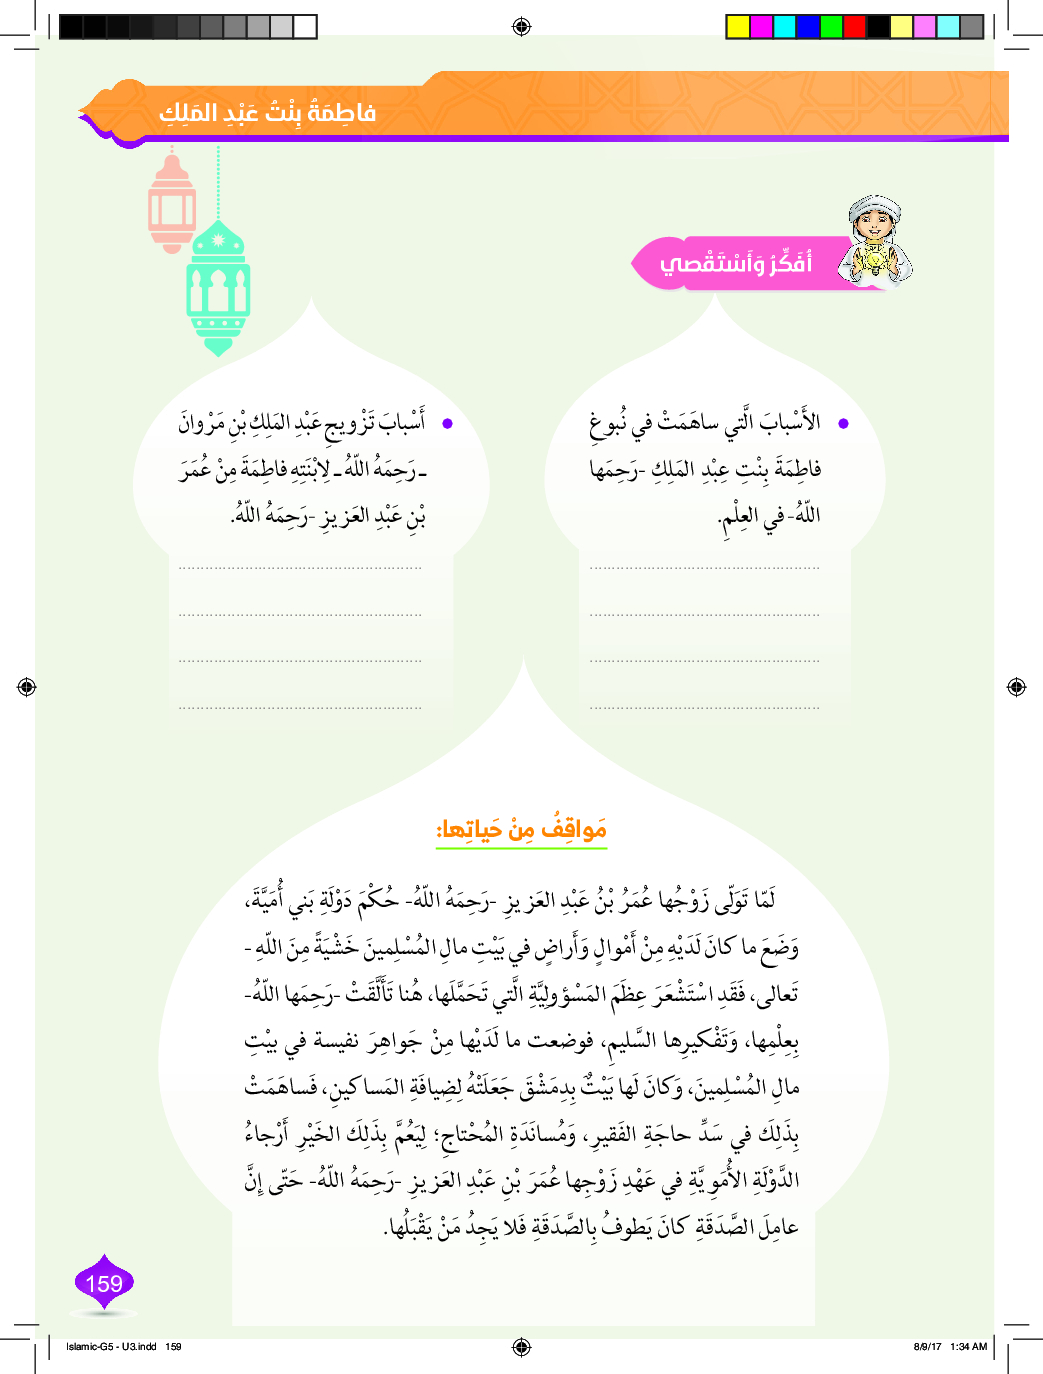 فاطِمَةُ بِنْتُ عَبْدِ المَلِكِ
أُفَكِّرُ وَأَسْتَقْصي
• الأَسْبابَ الَّتي ساهَمَتْ في نُبوغِ
فاطِمَةَ بِنْتِ عِبْدِ المَلِكِ -رَحِمَها
اللّهُ- في العِلْمِ.
................................................
................................................
................................................
................................................
• أَسْبابَ تَزْويجِ عَبْدِ المَلِكِ بْنِ مَرْوانَ
ـ رَحِمَهُ اللّهُ ـ لِابْنَتِهِ فاطِمَةَ مِنْ عُمَرَ
بْنِ عَبْدِ العَزيزِ -رَحِمَهُ اللّهُ.
................................................
................................................
................................................
................................................
مَواقِفُ مِنْ حَياتِها:
لَمّا تَوَلّى زَوْجُها عُمَرُ بْنُ عَبْدِ العَزيزِ -رَحِمَهُ اللّهُ- حُكْمَ دَوْلَةِ بَني أُمَيَّةَ،
وَضَعَ ما كانَ لَدَيْهِ مِنْ أَمْوالٍ وَأَراضٍ في بَيْتِ مالِ المُسْلِمينَ خَشْيَةً مِنَ اللّهِ -
تَعالى، فَقَدِ اسْتَشْعَرَ عِظَمَ المَسْؤولِيَّةِ الَّتي تَحَمَّلَها، هُنا تَأَلَّقَتْ -رَحِمَها اللّهُ-
بِعِلْمِها، وَتَفْكيرِها السَّليمِ، فوضعت ما لَدَيْها مِنْ جَواهِرَ نفيسة في بيْتِ
مالِ المُسْلِمينَ، وَكانَ لَها بَيْتٌ بِدِمَشْقَ جَعَلَتْهُ لِضِيافَةِ المَساكينِ، فَساهَمَتْ
بِذَلِكَ في سَدِّ حاجَةِ الفَقيرِ، وَمُسانَدَةِ المُحْتاجِ؛ لِيَعُمَّ بِذَلِكَ الخَيْرِ أَرْجاءُ
الدَّوْلَةِ الأُمَوِيَّةِ في عَهْدِ زَوْجِها عُمَرَ بْنِ عَبْدِ العَزيزِ -رَحِمَهُ اللّهُ- حَتّى إِنَّ
عامِلَ الصَّدَقَةِ كانَ يَطوفُ بِالصَّدَقَةِ فَلا يَجِدُ مَنْ يَقْبَلُها.
159
Islamic-G5 - U3.indd 159
8/9/17 1:34 AM